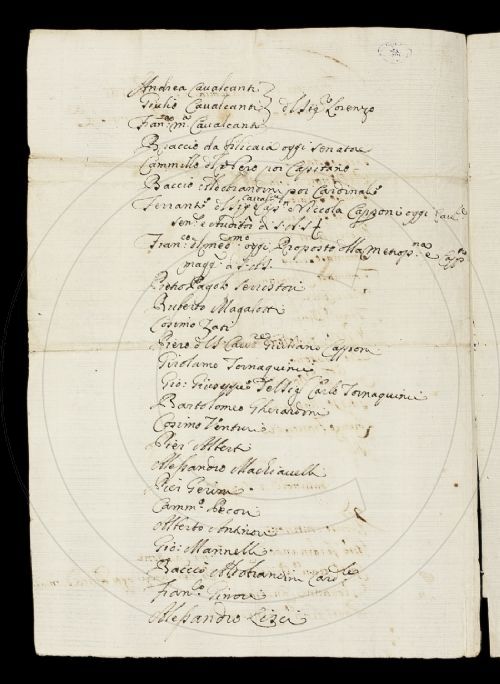 Andrea Cavalcanti
Giulio Cavalcanti del Sig:re Lorenzo
Fran:co M:a Cavalcanti
Braccio da Filicaia oggi Senatore
Cammillo del Nero poi Capitano
Baccio Aldobrandini poi Cardinale
Ferrante del Sig:re Niccola Capponi oggi
sen:re e Auditor di S.A.S.
Fran:co oggi Proposto alla Metrop:na e
magg:re a S.A.S.
Pietro Pagolo Serristori
Ruberto Magalotti
Cosimo Zati
Piero del Cav:re Giuliano Capponi
Girolamo Tornaquinci
Gio: Giuseppe del Sig: Carlo Tornaquinci
Bartolomeo Gherardini
Cosimo Venturi
Pier Alberti
Alessandro Machiavelli
Pier Gerini
Camm:o Pecori
Alberto Antinori
Gio: Mannelli
Baccio Aldobrandini Card:le
Fran:co Ginori
Alessandro Lisci